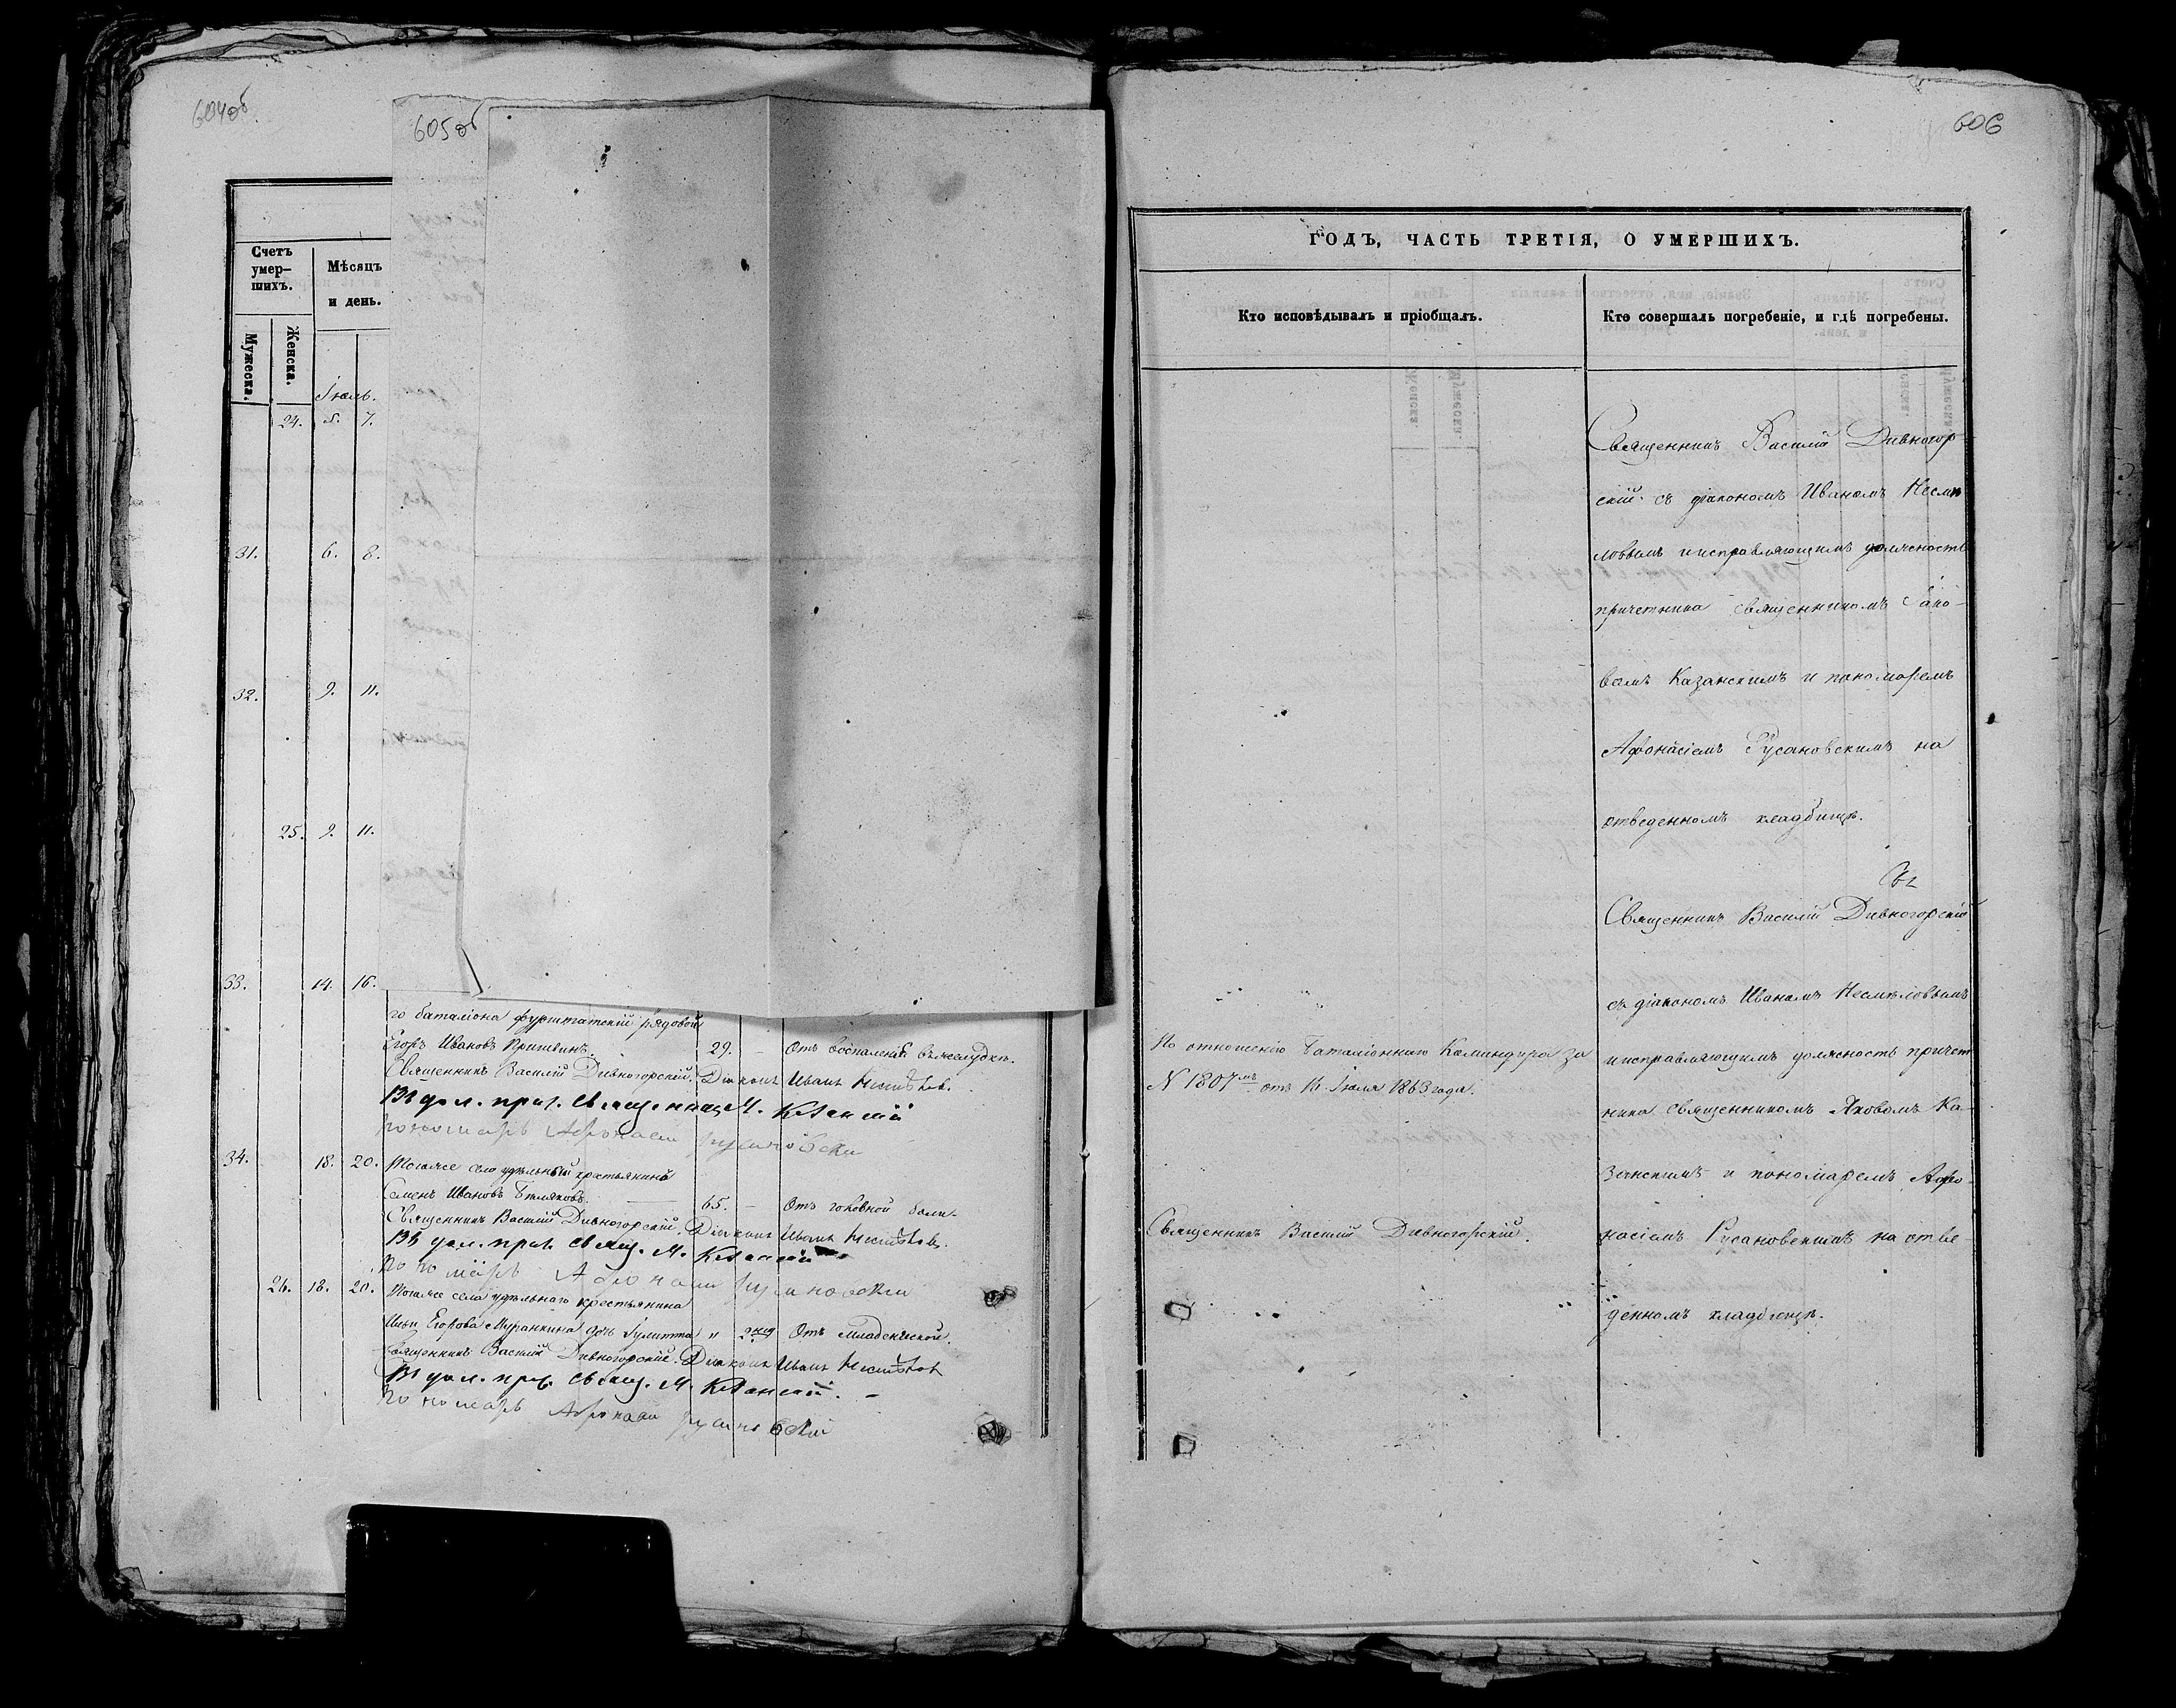 604об
605об
Счетъ
умер–
шихъ.
Мѣсяцъ
и день.
Мужеска.
Женска.
Іюль.
24. 5. 7.
31. 6. 8.
32. 9. 11.
25. 9. 11.
33. 14. 16.
го баталіона фурштатскій рядовой
Егоръ Ивановъ 29. – Отъ воспаленія въ желудкѣ.
Священникъ Василій Дивногорскій. Діаконъ Иванъ
Въ дол. прич. Священник Казанскій
пономарь Афонасій Русановскій
34. 18. 20. Тогоже села удѣльный крестьянинъ
Семенъ Ивановъ 65. – Отъ головной боли.
Священникъ Василій Дивногорскій. Діаконъ Иванъ
Въ дол. прич. Свящ. Казанскій
пономарь Афонасій Русановскій
26. 18. 20. Тогоже села удѣльнаго крестьянина
Ильи Егорова Муранкина дочь Іулитта " 2 нед Отъ младенческой.
Священникъ Василій Дивногорскій. Діаконъ Иванъ
Въ дол. прич. Свящ. Казанскій. –
пономарь Афонасій Русановскій
606
ГОДЪ, ЧАСТЬ ТРЕТІЯ, О УМЕРШИХЪ.
Кто исповѣдывалъ и пріобщалъ.
Кто совершалъ погребеніе, и гдѣ погребены.
Священникъ Василій Дивногор–
скій съ діакономъ Иваномъ Несмѣ
ловымъ и исправляющимъ должность
причетника священникомъ Іако–
вомъ Казанскимъ и пономаремъ
Афонасіемъ Русановскимъ на
отведенномъ кладбищѣ.
Священникъ Василій Дивногорскій
съ діакономъ Иваномъ Несмѣловымъ
и исправляющимъ должность причет
ника священникомъ Яковомъ Ка–
занскимъ и пономаремъ Афо–
насіемъ Русановскимъ на отве–
денномъ кладбищѣ.
По отношенію Баталіоннаго Командира за
N 1807мъ отъ 16 Іюля 1863 года.
Священникъ Василій Дивногорскій.